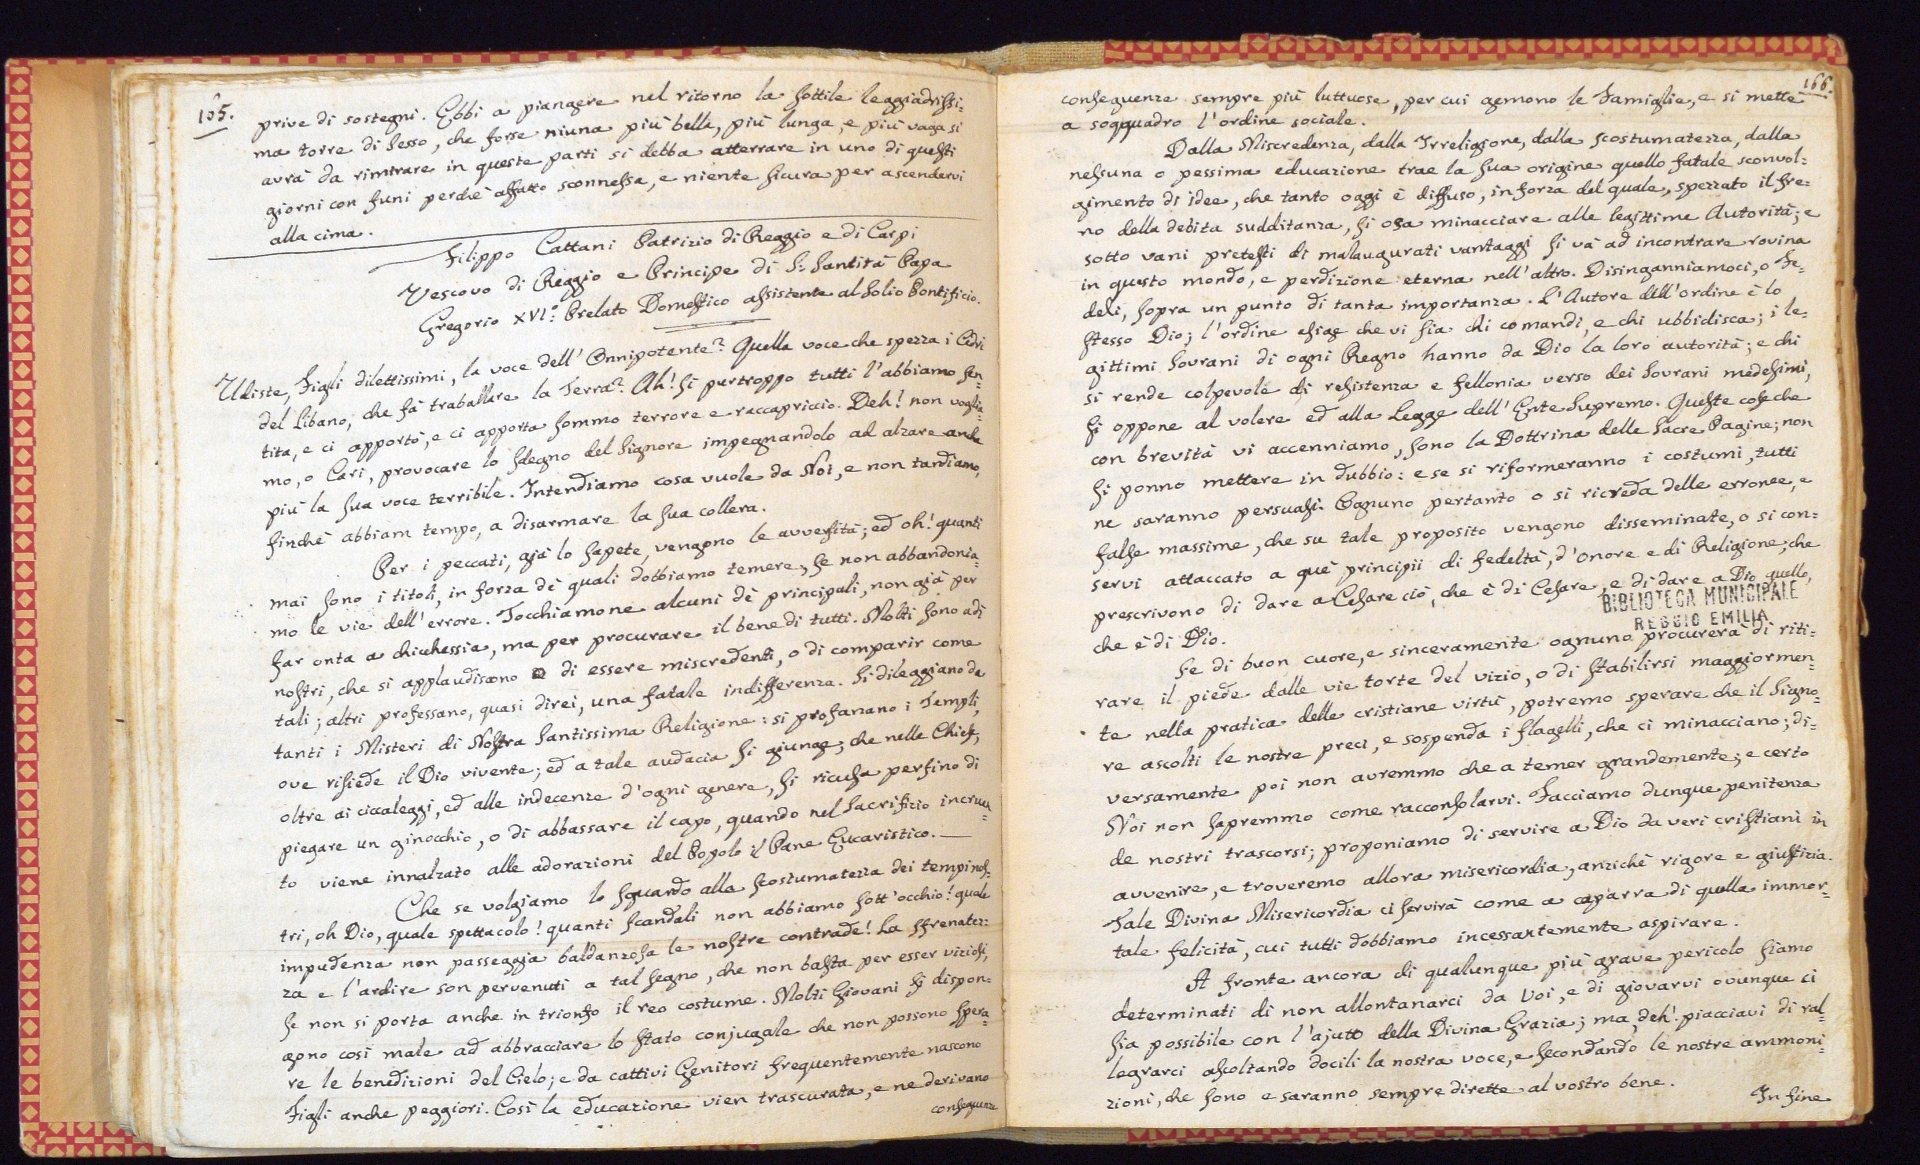 165.
prive di sostegni. Ebbi a piangere nel ritorno la sottile leggiadrissi-
ma torre di Sesso, che forse niuna più bella, più lunga, e più vaga si
avrà da rintrare in queste parti si debba atterrare in uno di questi
giorni con funi perchè affatto sconnessa, e niente sicura per ascendervi
alla cima.
Filippo Cattani Patrizio di Reggio e di Carpi
Vescovo di Reggio e Principe di S: Santità Papa
Gregorio XVI:° Prelato Domestico assistente al Solio Pontificio.
Udiste, Figli dilettissimi, la voce dell'Onnipotente? Quella voce che spezza i Cedri
del Libano, che fà traballare la Terra? Ah! si purtroppo tutti l'abbiamo sen-
tita, e ci apportò, e ci apporta sommo terrore e raccapriccio. Deh! non voglia-
mo, o Cari, provocare lo sdegno del Signore impegnandolo ad alzare anche
più la sua voce terribile. Intendiamo cosa vuole da Noi, e non tardiamo,
finchè abbiam tempo, a disarmare la sua collera.
Per i peccati, già lo sapete, vengono le avversità; ed oh! quanti
mai sono i titoli, in forza dè quali dobbiamo temere, se non abbandonia-
mo le vie dell'errore. Tocchiamone alcuni dè principali, non già per
far onta a chichessia, ma per procurare il bene di tutti. Molti sono a dì
nostri, che si applaudiscono di essere miscredenti, o di comparir come
tali; altri professano, quasi direi, una fatale indifferenza. Si dileggiano da
tanti i Misteri di Nostra Santissima Religione: si profanano i Templi,
ove risiede il Dio vivente; ed a tale audacia si giunge, che nelle Chiese,
oltre ai ciccaleggi, ed alle indecenze d'ogni genere, si ricusa perfino di
piegare un ginocchio, o di abbassare il capo, quando nel Sacrifizio incruen-
to viene innalzato alle adorazioni del Popolo il Pane Eucaristico.
Che se volgiamo lo sguardo alla scostumatezza dei tempi nos-
tri, oh Dio, quale spettacolo! quanti scandali non abbiamo sott'occhio! quale
impudenza non passeggia baldanzosa le nostre contrade! La sfrenatez-
za e l'ardire son pervenuti a tal segno, che non basta per esser viziosi,
se non si porta anche in trionfo il reo costume. Molti Giovani si dispon-
gono così male ad abbracciare lo stato conjugale che non possono spera-
re le benedizioni del Cielo; e da cattivi Genitori frequentemente nascono
Figli anche peggiori. Così la educazione vien trascurata, e ne derivano
conseguenze
166.
conseguenze sempre più luttuose, per cui gemono le Famiglie, e si mette
a soqquadro l'ordine sociale.
Dalla Miscredenza, dalla Irreligione, dalla scostumatezza, dalla
nessuna o pessima educazione trae la sua origine quello fatale sconvol-
gimento di idee, che tanto oggi è diffuso, in forza del quale, spezzato il fre-
no della debita sudditanza, si osa minacciare alle legittime Autorità; e
sotto vani pretesti di malaugurati vantaggi si và ad incontrare rovina
in questo mondo, e perdizione eterna nell'altro. Disinganniamoci, o Fe-
deli, sopra un punto di tanta importanza. L'Autore dell'ordine è lo
stesso Dio; l'ordine esige che vi sia chi comandi, e chi ubbidisca; i le-
gittimi Sovrani di ogni Regno hanno da Dio la loro autorità; e chi
si rende colpevole di resistenza e fellonia verso dei Sovrani medesimi,
si oppone al volere ed alla Legge dell'Ente Supremo. Queste cose che
con brevità vi accenniamo, sono la Dottrina delle Sacre Pagine; non
si ponno mettere in dubbio: e se si riformeranno i costumi, tutti
ne saranno persuasi. Ognuno pertanto o si ricreda delle erronee, e
false massime, che su tale proposito vengono disseminate, o si con-
servi attaccato a què principii di fedeltà, d'onore e di Religione, che
prescrivono di dare a Cesare ciò, che è di Cesare, e di dare a Dio quello,
che è di Dio.
BIBLIOTECA MUNICIPALE
REGGIO EMILIA
Se di buon cuore, e sinceramente ognuno procurerà di riti-
rare il piede dalle vie torte del vizio, o di stabilirsi maggiormen-
te nella pratica delle cristiane virtù, potremo sperare che il Signo-
re ascolti le nostre preci, e sospenda i flagelli, che ci minacciano; di-
versamente poi non avremmo che a temer grandemente; e certo
Noi non sapremmo come racconsolarvi. Facciamo dunque penitenza
de nostri trascorsi; proponiamo di servire a Dio da veri cristiani in
avvenire, e troveremo allora misericordia, anzichè rigore e giustizia.
Tale Divina Misericordia ci servirà come a caparra di quella immor-
tale felicità, cui tutti dobbiamo incessantemente aspirare.
A fronte ancora di qualunque più grave pericolo siamo
determinati di non allontanarci da Voi, e di giovarvi ovunque ci
sia possibile con l'ajutto della Divina Grazia; ma, deh! piacciavi di ral-
legrarci ascoltando docili la nostra voce, e secondando le nostre ammoni-
zioni, che sono e saranno sempre dirette al vostro bene.
In fine